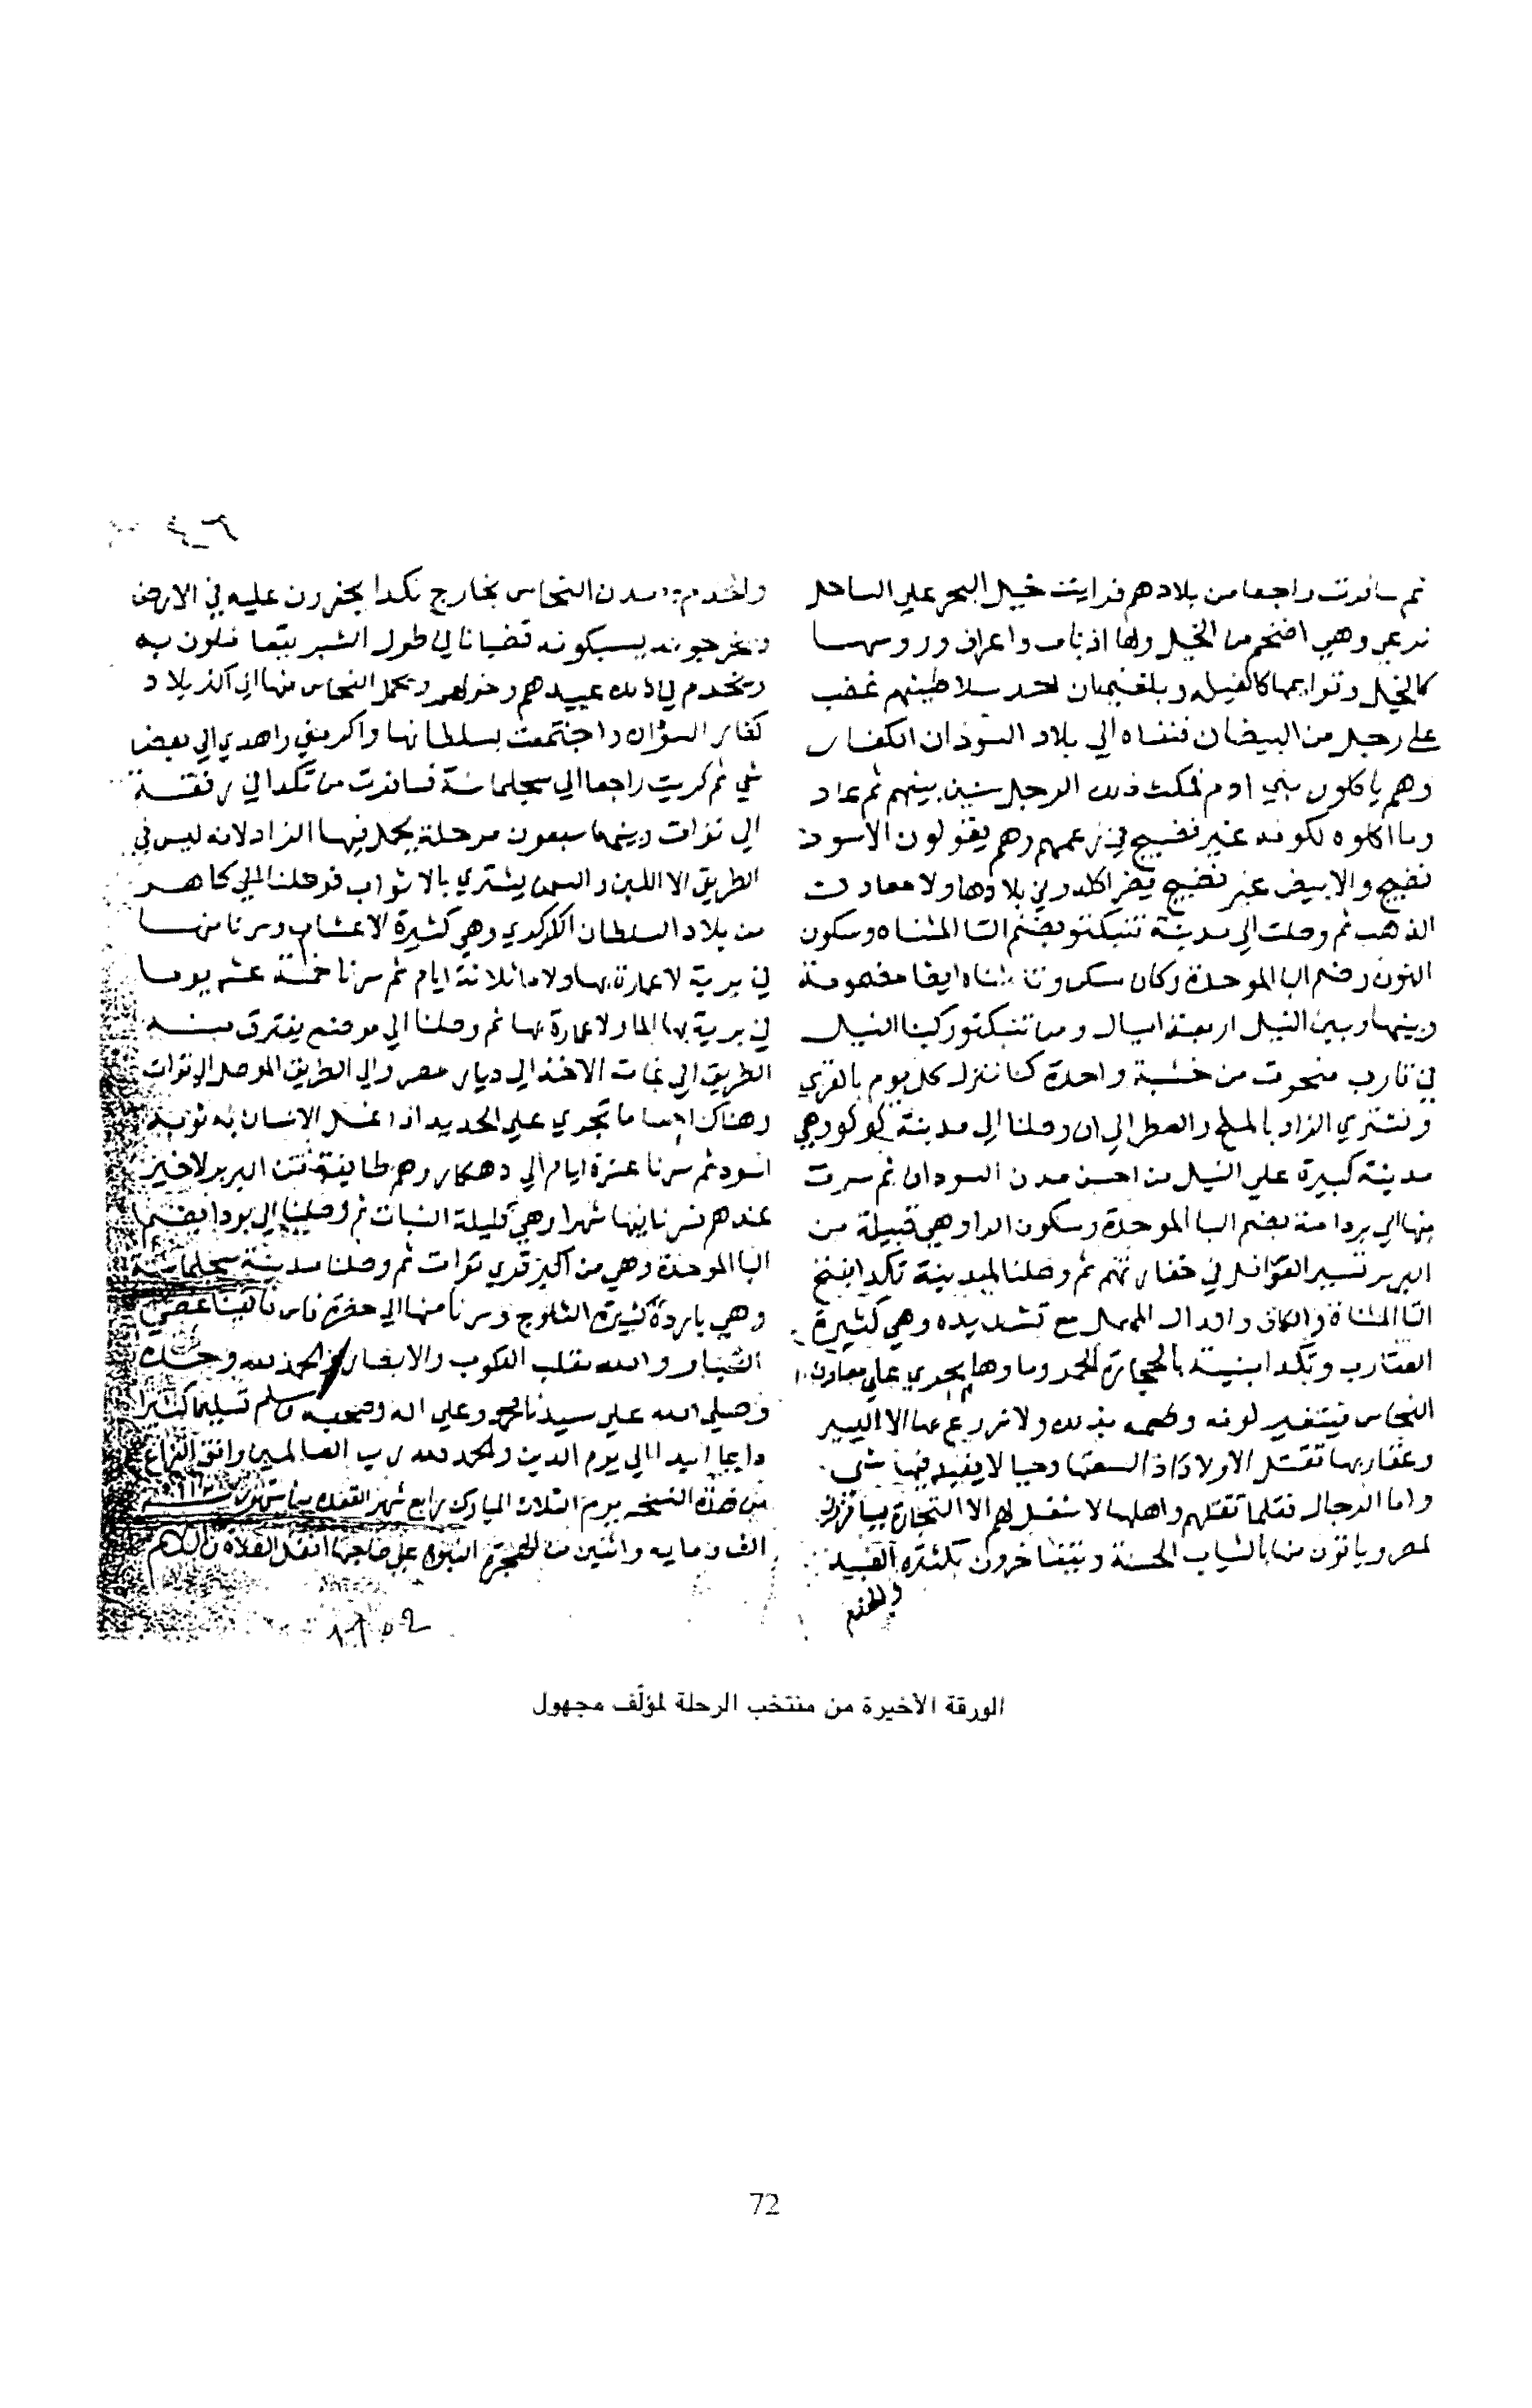 ثم سافرت راجعا من بلادهم فرايت خيل البحر علي الساحل
ترعي وهي اضخم من الخيل ولها اذناب واعراف وروسها
كالخيل وقوايمها كالفيله وبلغني ان احد سلاطينهم غضب
علي رجل من البيضان فنفاه الي بلاد السودان الكفار
وهم ياكلون بني ادم فمكث ذلك الرجل سنين بينهم ثم عاد
وما اكلوه لكونه غير نضيج في زعمهم وهم يقولون الاسود
نضيج والابيض غير نضيج يضر اكله وفي بلادها ولا معادن
الذهب ثم وصلت الي مدينة تنبكتو بضم التا المثناه وسكون
النون وضم البا الموحدة وكان سكون مثناه ايضا مضمومة
وبينها وبين النيل اربعة اميال ومن تنبكتو ركبنا النيل
في قارب منحوت من خشبة واحدة كنا ننزل كل يوم بالقري
ونشتري الزاد بالملح والعطر الي ان وصلنا الي مدينة كوكو وهي
مدينة كبيرة علي النيل من احسن مدن السودان ثم سرت
منها الي بردامة بضم البا الموحدة وسكون الرا وهي قبيلة من
البربر تسير القوافل في خفارتهم ثم وصلنا لمدينة تكدا بفتح
التا المثناة والكاف والدال المهمل مع تشديده وهي كثيرة
العقارب وتكدا مبنية بالحجارة الحمر وماوها يجري علي معادن
النحاس فيتغير لونه وطعمه بذلك ولا تزرع بها الا اليسير
وعقاربها تقتل الاولاد اذا لسعتها وحيا لا يفيد فيها شي
واما الرجال فقلما تقتلهم واهلها لا شغل لهم الا التجارة يسافرون
لمصر وياتون منها بالثياب الحسنة ويتفاخرون بكثرة العبيد
والخدم
والخدم ومعدن النحاس بخارج تكدا يحفرون عليه في الارض
ويخرجونه يسبكونه قضبانا في طول الشبر يتعاملون به
ويخدم في ذلك عبيدهم وخدامهم ويحمل النحاس منها الي اكثر بلاد
كفار السودان واجتمعت بسلطانها واكرمني واهدي الي بعض
شي ثم كريت راجعا الي سجلماسة فسافرت من تكدا في رفقة
الي توات وبينهما سبعون مرحلة يحمل فيها الزاد لانه ليس في
الطريق الا اللبن والسمن يشتري بالاثواب فوصلنا الي كاهر
من بلاد السلطان الكركري وهي كثيرة الاعشاب وسرنا منها
في برية لا عمارة بها ولا ما ثلاثة ايام ثم سرنا خمسة عشر يوما
في برية بها الما ولا عمارة بها ثم وصلنا الي موضع يفترق منه
الطريق الي غات الاخذ الي ديار مصر والي الطريق الموصل الي توات
وهناك احسا ما تجري علي الحديد اذا غسل الانسان به ثوبه
اسود ثم سرنا عشرة ايام الي دهكار وهم طايفة من البربر لا خير
عندهم فسرنا فيها شهرا وهي قليلة النبات ثم وصلنا الي بودا بضم
البا الموحدة وهي من اكبر قري توات ثم وصلنا مدينة سجلماسة
وهي باردة كثيرة الثلوج وسرنا منها الي حضرة فاس فالقينا عصي
التسيار والله مقلب القلوب والابصار والحمد لله وحده
وصلي الله علي سيدنا محمد وعلي اله وصحبه وسلم تسليما كثيرا
دايما ابدا الي يوم الدين والحمد لله رب العالمين وافق الفراغ
من هذه النسخه يوم الثلاث المبارك رابع شهر القعده
الف ومايه واثنين من الهجرة النبوه علي صاحبها افضل الصلاة والسلام
الورقة الأخيرة من منتخب الرحلة لمؤلف مجهول
72